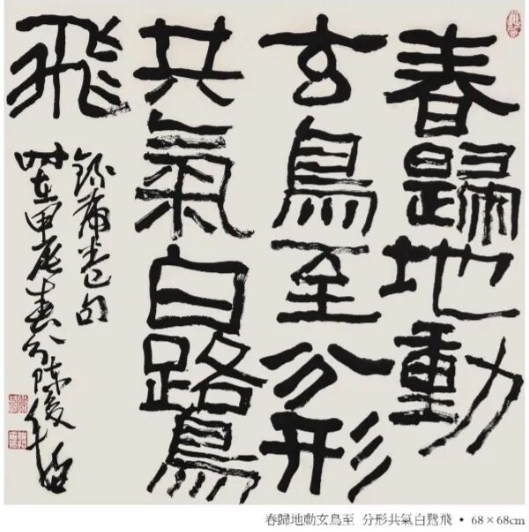 春歸地動
玄鳥至分形
共氣白鷺
飛
時在甲辰春分陳
春歸地動玄鳥至 分形共氣白鷺飛 • 68×68cm